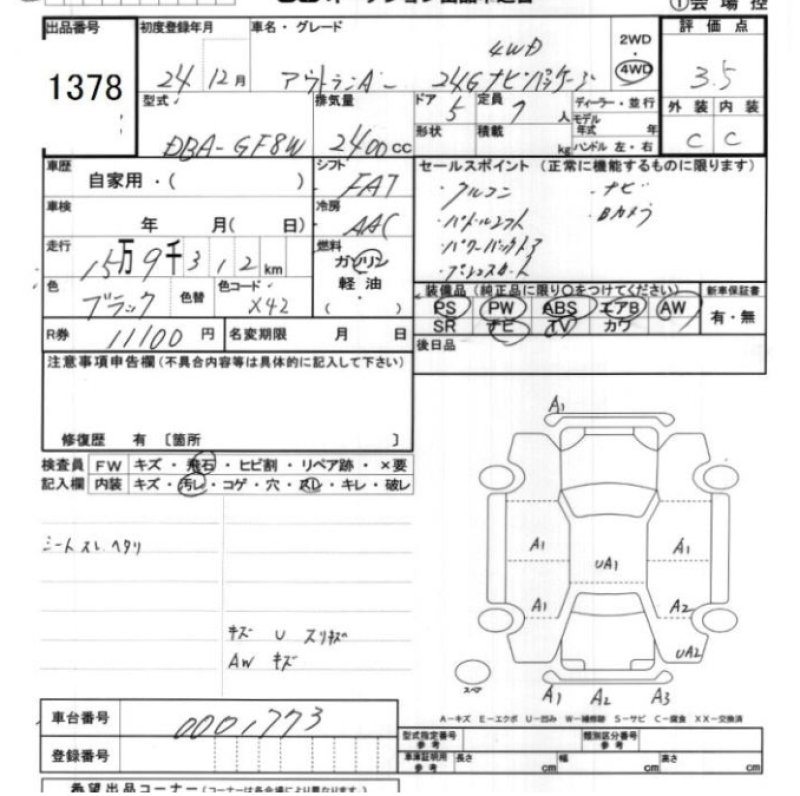 ①会場控
出品番号 1378
初度登録年月 24年12月
車名・グレード
アウトランダー 24G ナビパッケージ 4WD
2WD
・
4WD
評価点 3.5
外装 内装
C C
型式 DBA-GF8W
排気量 2400cc
ドア 5 定員 7人
形状 積載 kg
ディーラー・並行
モデル年式 年
ハンドル 左・右
車歴 自家用・( )
シフト FAT
車検 年 月( 日)
冷房 AAC
走行 15万9千312km
燃料 ガソリン
軽油
( ・ )
色 ブラック 色替 色コード X42
R券 11100円 名変期限 月 日
セールスポイント(正常に機能するものに限ります)
・クルコン ・ナビ
・パドルシフト ・Bカメラ
・パワーバックドア
・プッシュスタート
装備品(純正品に限り○をつけてください) 新車保証書
PS PW ABS エアB AW 有・無
SR ナビ TV カワ
後日品
注意事項申告欄(不具合内容等は具体的に記入して下さい)
修復歴 有 〔箇所 〕
検査員 FW キズ・飛石・ヒビ割・リペア跡・×要
記入欄 内装 キズ・汚レ・コゲ・穴・スレ・キレ・破レ
シートスレ ヘタリ
キズ U スリキズ
AW キズ
A1
A1 UA1 A1
A1 A2
UA2
スペア
A1 A2 A3
A−キズ E−エクボ U−凹み W−補修跡 S−サビ C−腐食 XX−交換済
車台番号 0001773
登録番号
型式指定番号 参考 類別区分番号 参考
車庫証明用 参考 長さ cm 幅 cm 高さ cm
希望出品コーナー(コーナーは各会場により異なります。)